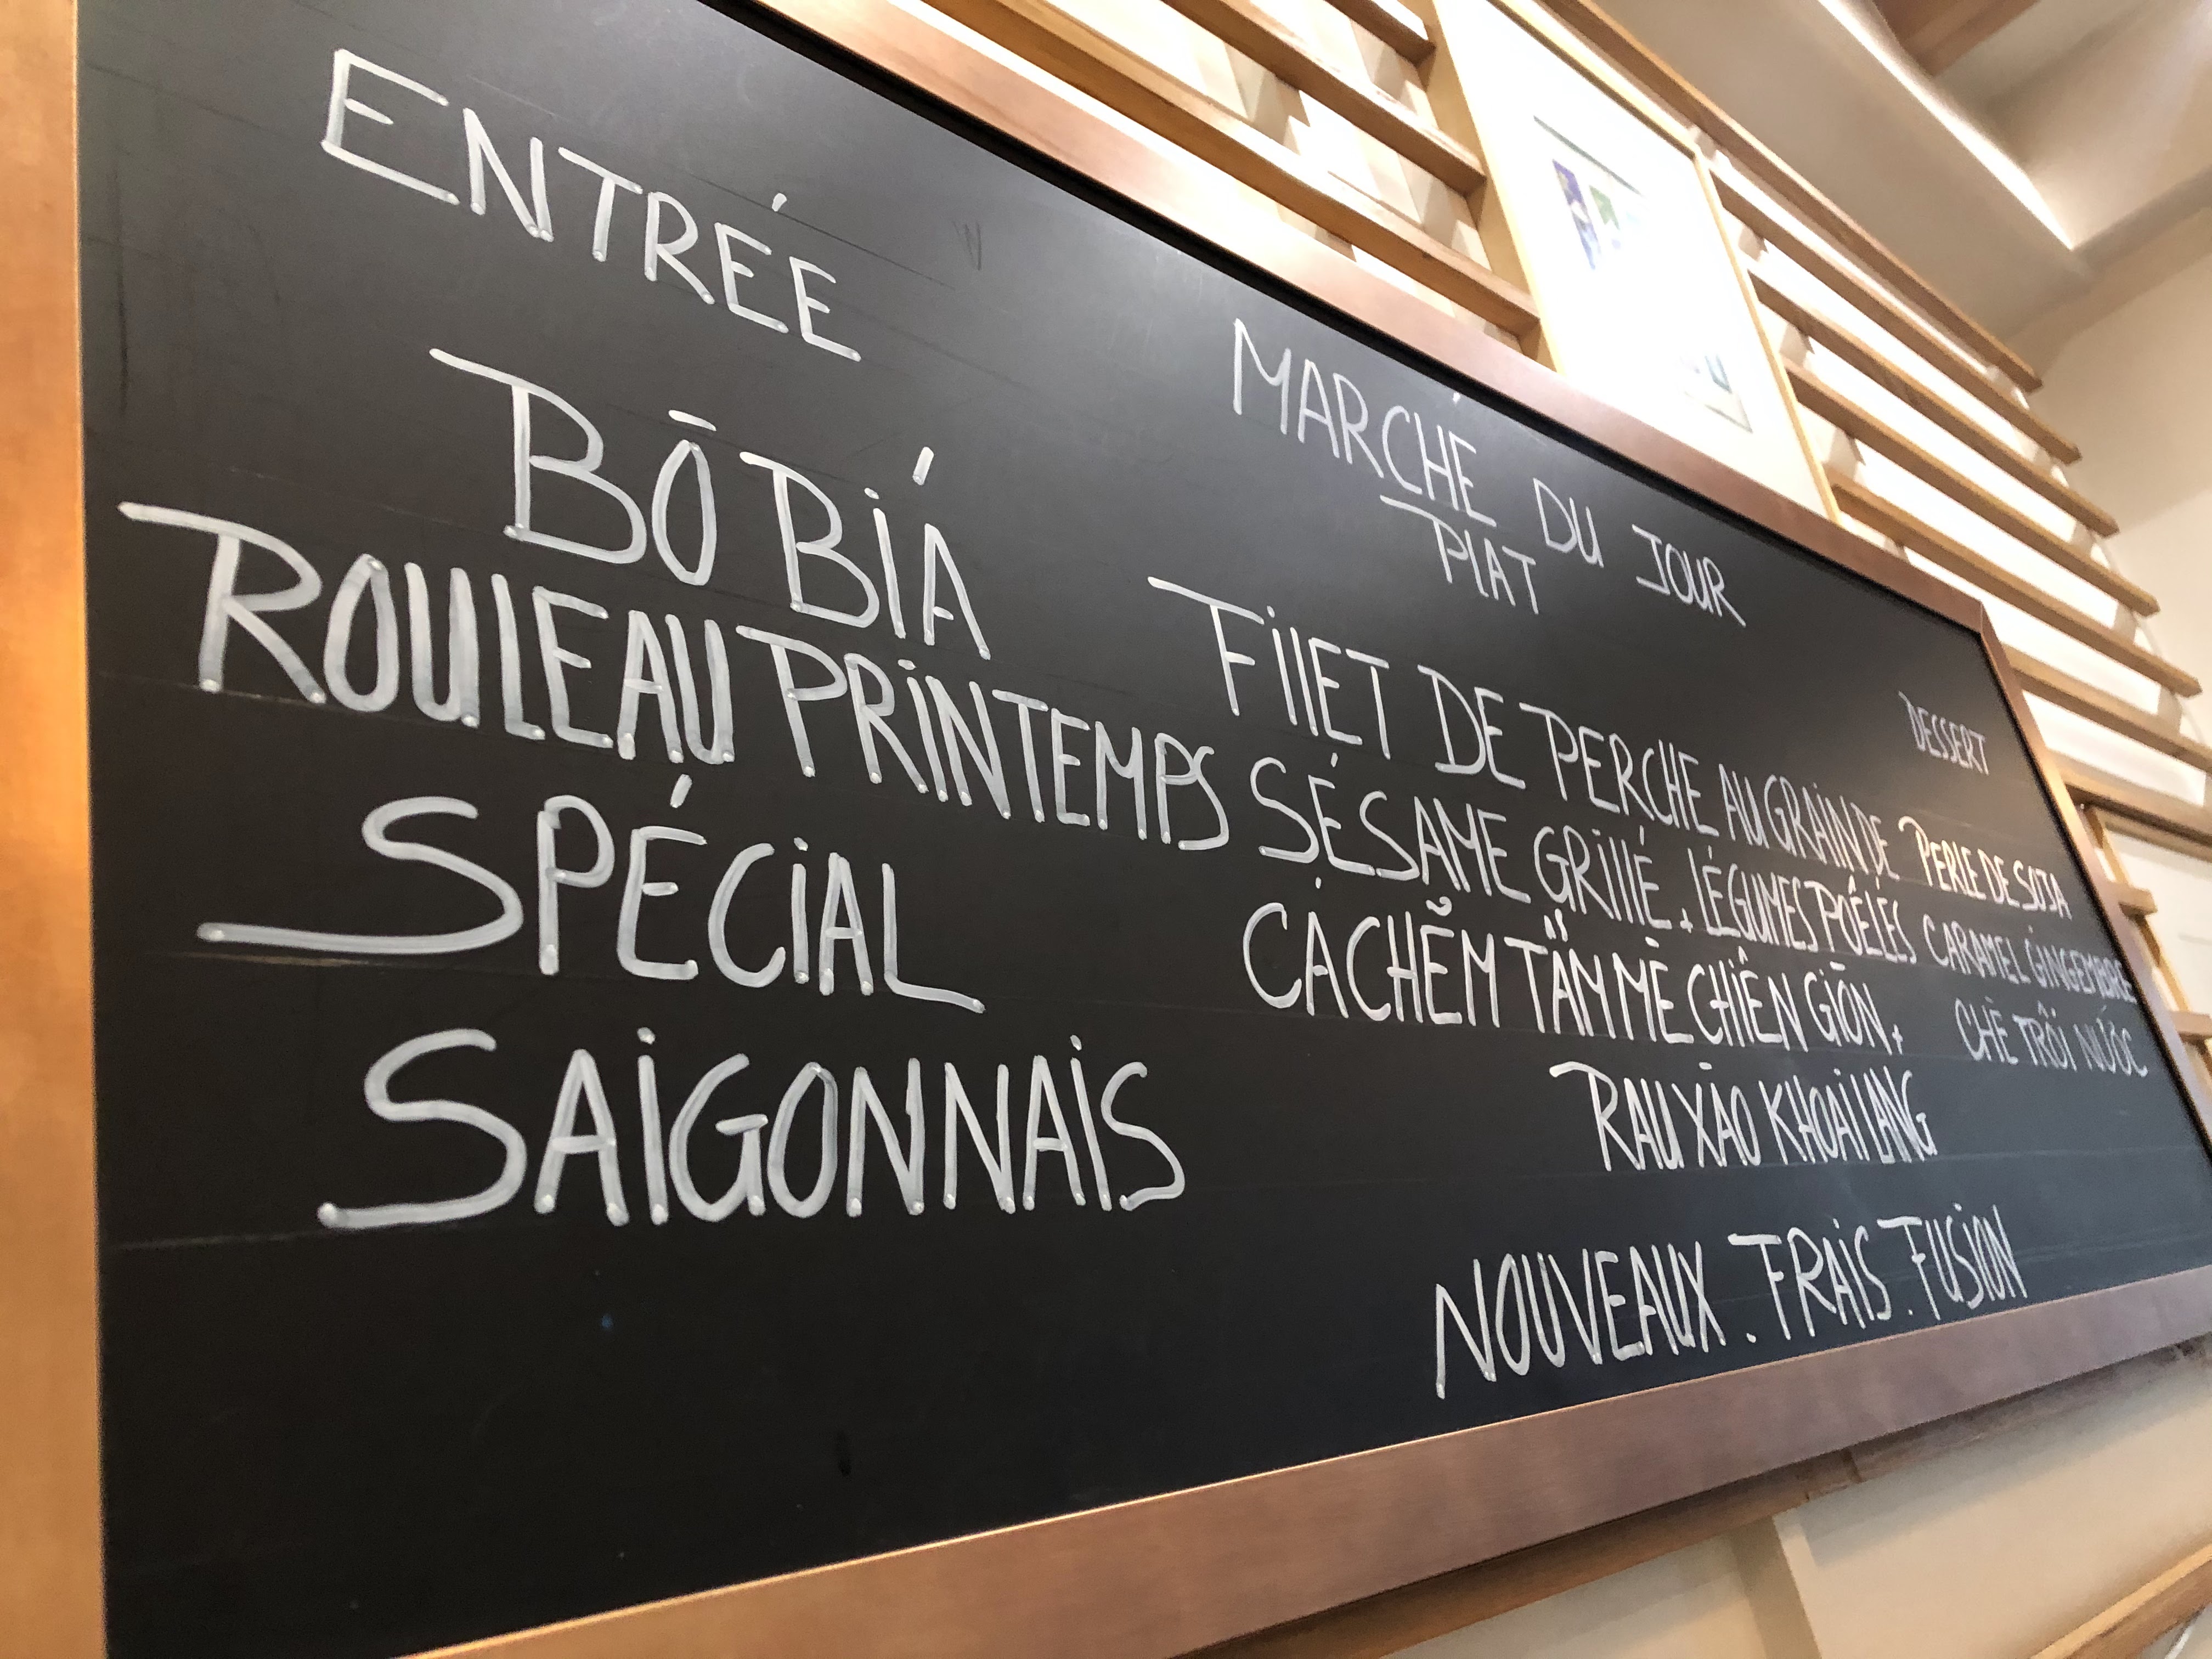 ENTRÉE
BÒ BÍA
ROULEAU PRINTEMPS
SPÉCIAL
SAIGONNAIS
MARCHÉ DU JOUR
PLAT
FILET DE PERCHE AU GRAIN DE
SÉSAME GRILLÉ + LÉGUMES POÊLÉS
CÁ CHẼM TẨM MÈ CHIÊN GIÒN +
RAU XÀO KHOAI LANG
DESSERT
PERLE DE SOJA
CARAMEL GINGEMBRE
CHÈ TRÔI NƯỚC
NOUVEAUX . FRAIS . FUSION